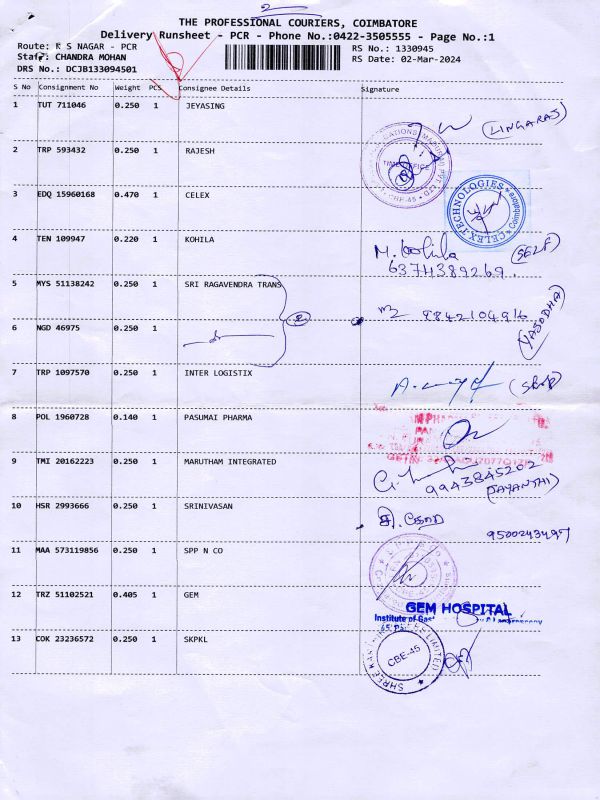 2
THE PROFESSIONAL COURIERS, COIMBATORE
Delivery Runsheet - PCR - Phone No.:0422-3505555 - Page No.:1
Route: K S NAGAR - PCR RS No.: 1330945
Staff: CHANDRA MOHAN RS Date: 02-Mar-2024
DRS No.: DCJB133094501
S No Consignment No Weight PCS Consignee Details Signature
1 TUT 711046 0.250 1 JEYASING (LINGARAJ)
2 TRP 593432 0.250 1 RAJESH TIME OFFICE CBE-45
3 EDQ 15960168 0.470 1 CELEX CELEX TECHNOLOGIES Coimbatore
4 TEN 109947 0.220 1 KOHILA M. Kohila (SELF)
6374389269.
5 MYS 51138242 0.250 1 SRI RAGAVENDRA TRANS 9842104916
(YASODHA)
6 NGD 46975 0.250 1 2
7 TRP 1097570 0.250 1 INTER LOGISTIX
8 POL 1960728 0.140 1 PASUMAI PHARMA
9 TMI 20162223 0.250 1 MARUTHAM INTEGRATED 9943845202
(JAYANTHI)
10 HSR 2993666 0.250 1 SRINIVASAN
9500243497
11 MAA 573119856 0.250 1 SPP N CO
12 TRZ 51102521 0.405 1 GEM GEM HOSPITAL
Institute of Gast
13 COK 23236572 0.250 1 SKPKL LIMITED CBE-45